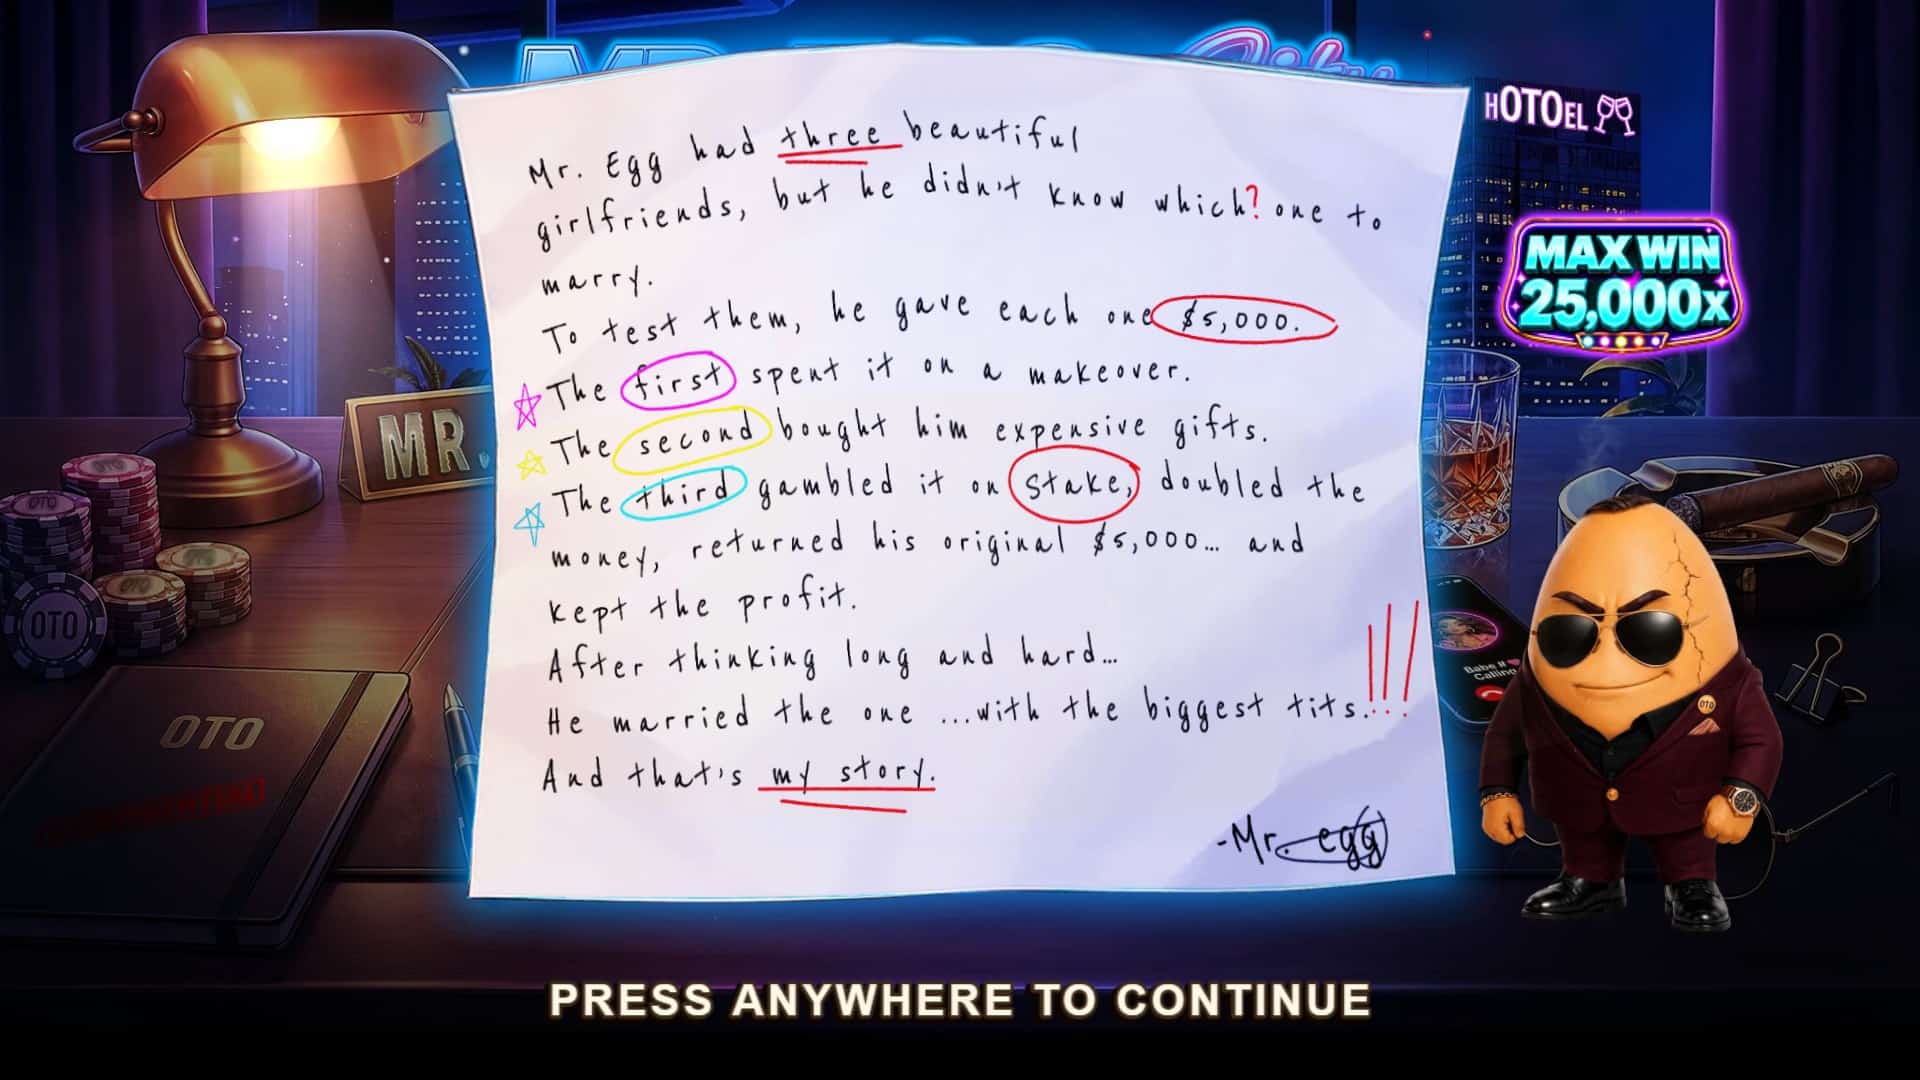 Mr. Egg had three beautiful
girlfriends, but he didn't know which? one to
marry.
To test them, he gave each one $5,000.
The first spent it on a makeover.
The second bought him expensive gifts.
The third gambled it on Stake, doubled the
money, returned his original $5,000... and
kept the profit.
After thinking long and hard...
He married the one ...with the biggest tits.!!!
And that's my story.
-Mr. egg
HOTOEL
MAX WIN
25,000x
MR.
OTO
OTO
OTO
OTO
OTO
OTO
Babe #
Calling
PRESS ANYWHERE TO CONTINUE